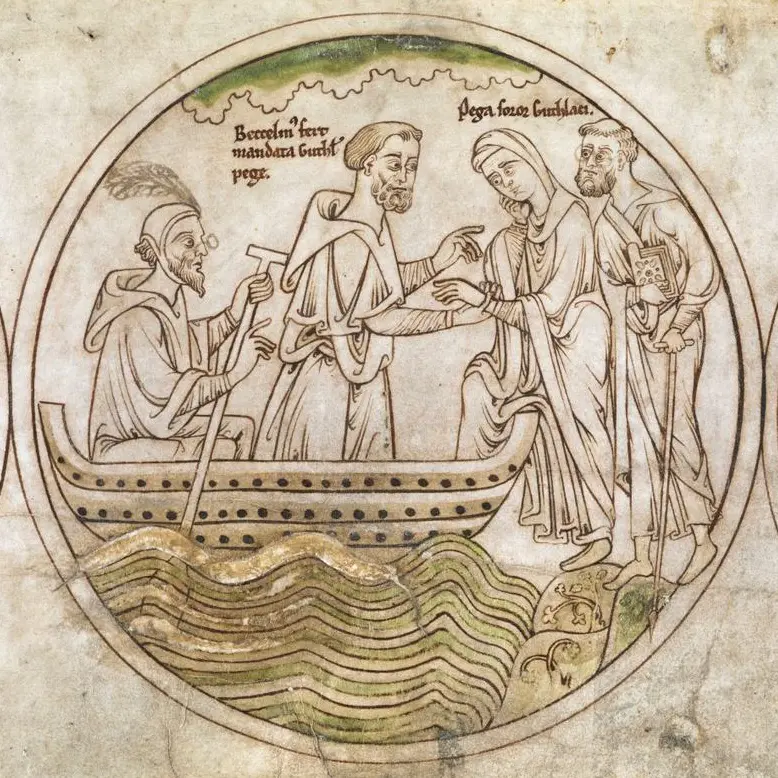 Beccelin' fert
mandata Guthl'
pege.
Pega soror Guthlaci.